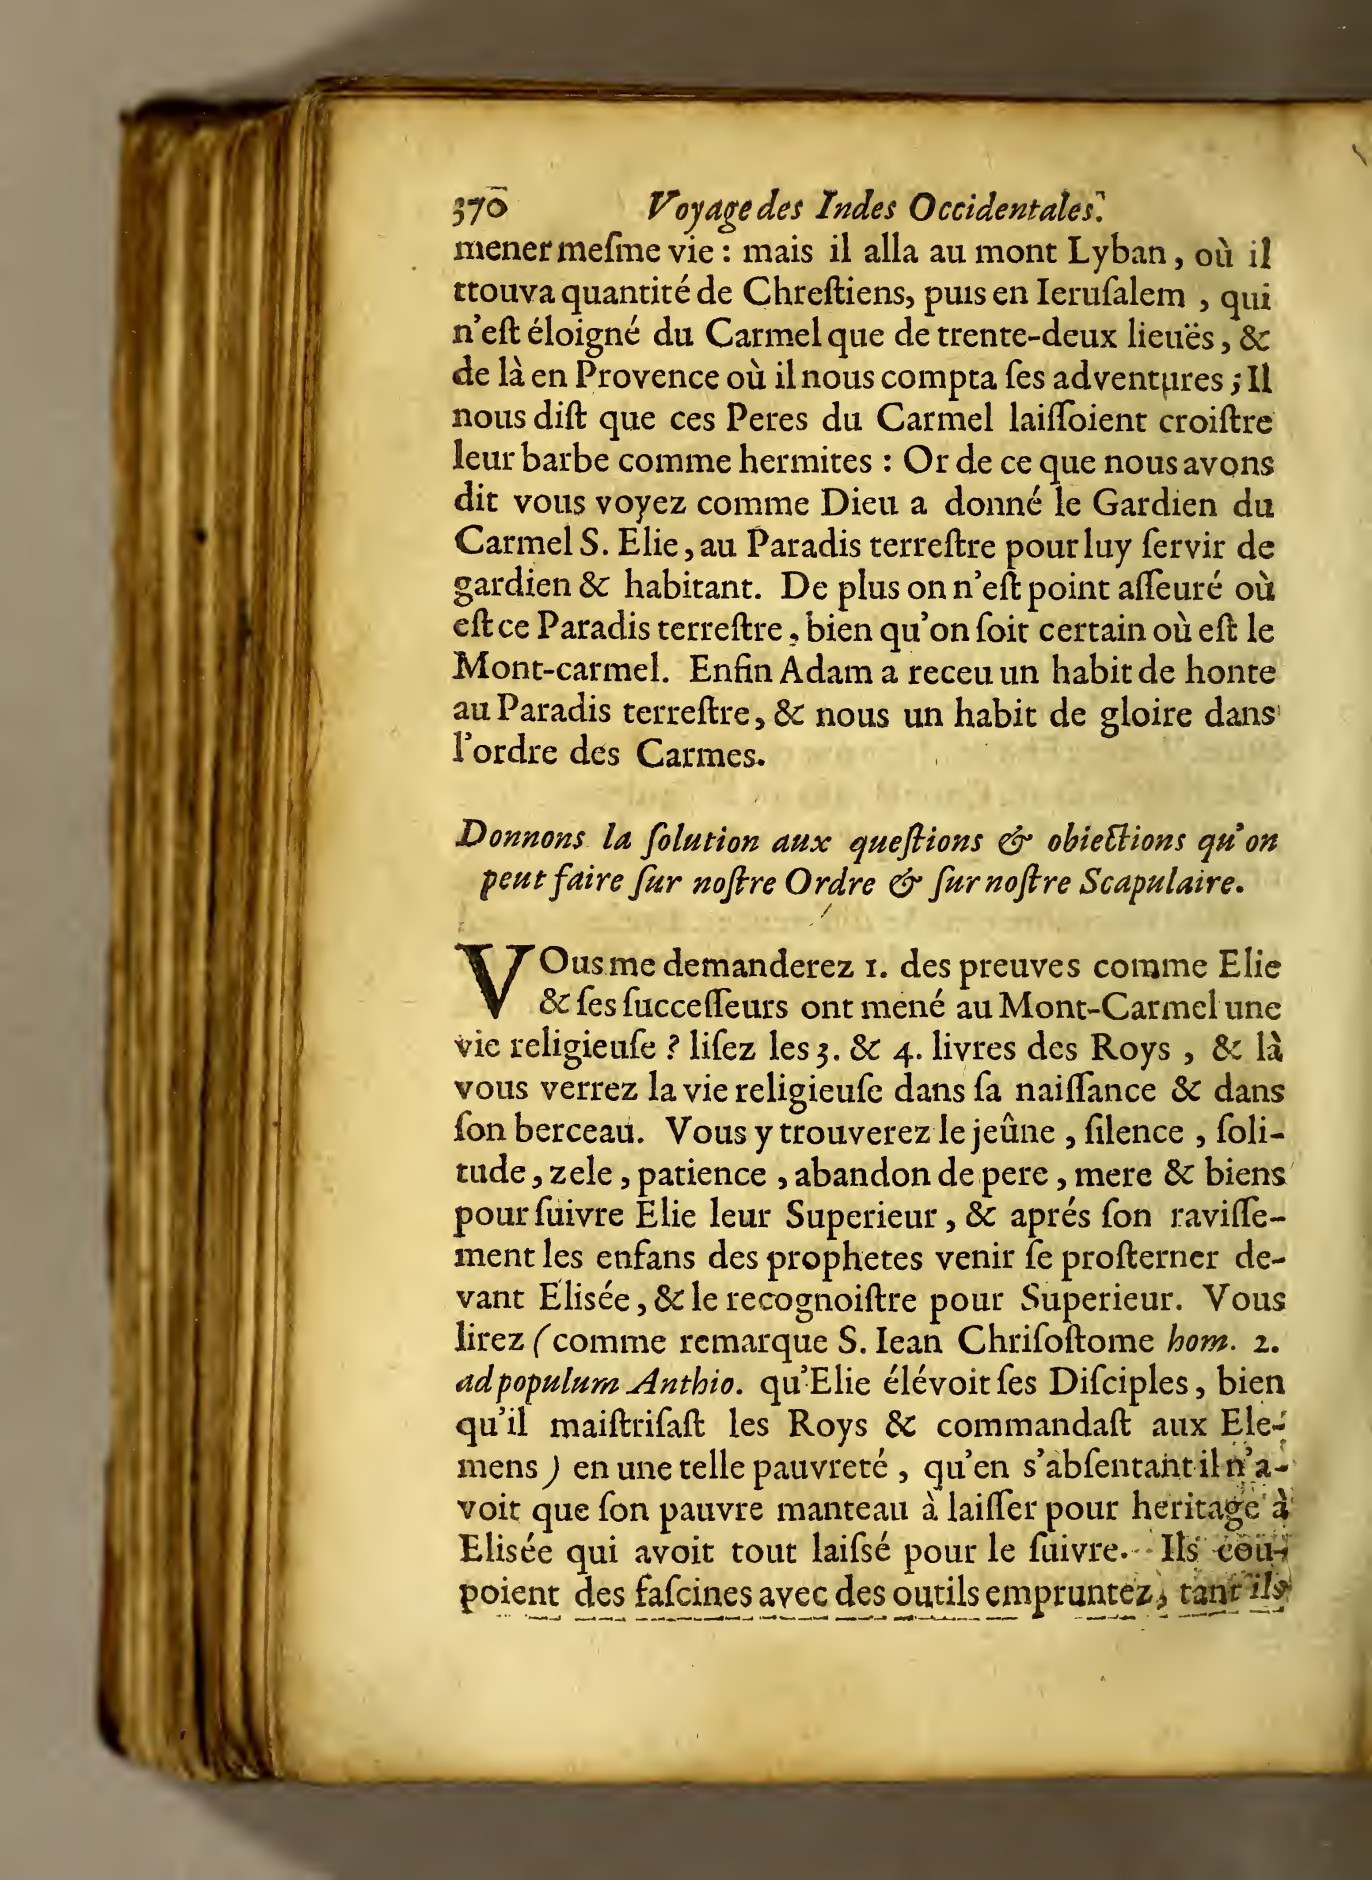 370 Voyage des Indes Occidentales.
mener meſme vie : mais il alla au mont Lyban, où il
ttouva quantité de Chreſtiens, puis en Ieruſalem , qui
n'eſt éloigné du Carmel que de trente-deux lieuës, &
de là en Provence où il nous compta ſes adventures ; Il
nous diſt que ces Peres du Carmel laiſſoient croiſtre
leur barbe comme hermites : Or de ce que nous avons
dit vous voyez comme Dieu a donné le Gardien du
Carmel S. Elie, au Paradis terreſtre pour luy ſervir de
gardien & habitant. De plus on n'eſt point aſſeuré où
eſt ce Paradis terreſtre, bien qu'on ſoit certain où eſt le
Mont-carmel. Enfin Adam a receu un habit de honte
au Paradis terreſtre, & nous un habit de gloire dans
l'ordre des Carmes.
Donnons la ſolution aux queſtions & obiections qu'on
peut faire ſur noſtre Ordre & ſur noſtre Scapulaire.
VOus me demanderez 1. des preuves comme Elie
& ſes ſucceſſeurs ont mené au Mont-Carmel une
vie religieuſe ? liſez les 3. & 4. livres des Roys , & là
vous verrez la vie religieuſe dans ſa naiſſance & dans
ſon berceau. Vous y trouverez le jeûne , ſilence , ſoli-
tude, zele, patience , abandon de pere, mere & biens
pour ſuivre Elie leur Superieur, & aprés ſon raviſſe-
ment les enfans des prophetes venir ſe proſterner de-
vant Elisée, & le recognoiſtre pour Superieur. Vous
lirez (comme remarque S. Iean Chriſoſtome hom. 2.
ad populum Anthio. qu'Elie élévoit ſes Diſciples, bien
qu'il maiſtriſaſt les Roys & commandaſt aux Ele-
mens ) en une telle pauvreté , qu'en s'abſentant il n'a-
voit que ſon pauvre manteau à laiſſer pour heritage à
Elisée qui avoit tout laiſsé pour le ſuivre. Ils cou-
poient des faſcines avec des outils empruntez, tant ils